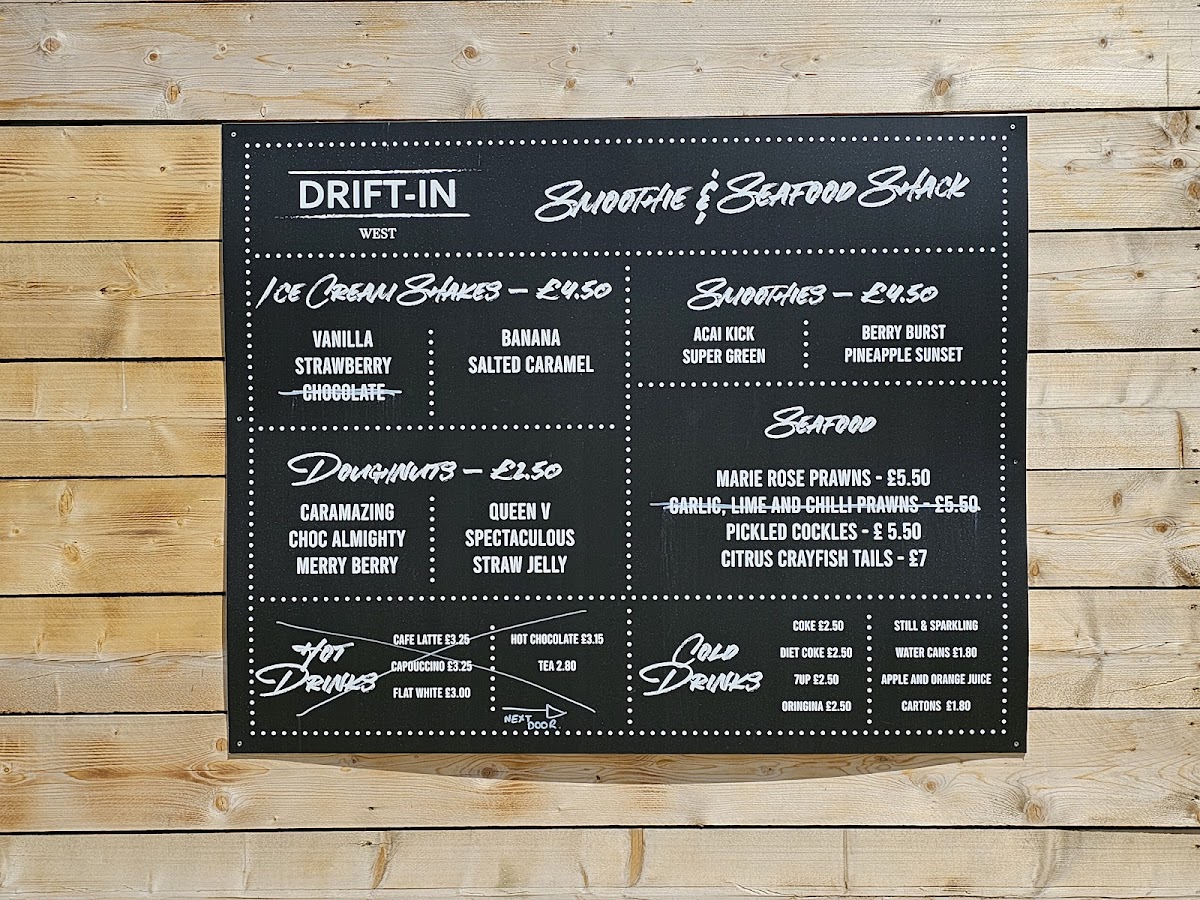 DRIFT-IN
WEST
SMOOTHIE & SEAFOOD SHACK
ICE CREAM SHAKES – £4.50
VANILLA
STRAWBERRY
CHOCOLATE
BANANA
SALTED CARAMEL
SMOOTHIES – £4.50
ACAI KICK
SUPER GREEN
BERRY BURST
PINEAPPLE SUNSET
DOUGHNUTS – £2.50
CARAMAZING
CHOC ALMIGHTY
MERRY BERRY
QUEEN V
SPECTACULOUS
STRAW JELLY
SEAFOOD
MARIE ROSE PRAWNS - £5.50
GARLIC, LIME AND CHILLI PRAWNS - £5.50
PICKLED COCKLES - £ 5.50
CITRUS CRAYFISH TAILS - £7
HOT
DRINKS
CAFE LATTE £3.25
CAPOUCCINO £3.25
FLAT WHITE £3.00
HOT CHOCOLATE £3.15
TEA 2.80
NEXT
DOOR.
COLD
DRINKS
COKE £2.50
DIET COKE £2.50
7UP £2.50
ORINGINA £2.50
STILL & SPARKLING
WATER CANS £1.80
APPLE AND ORANGE JUICE
CARTONS £1.80